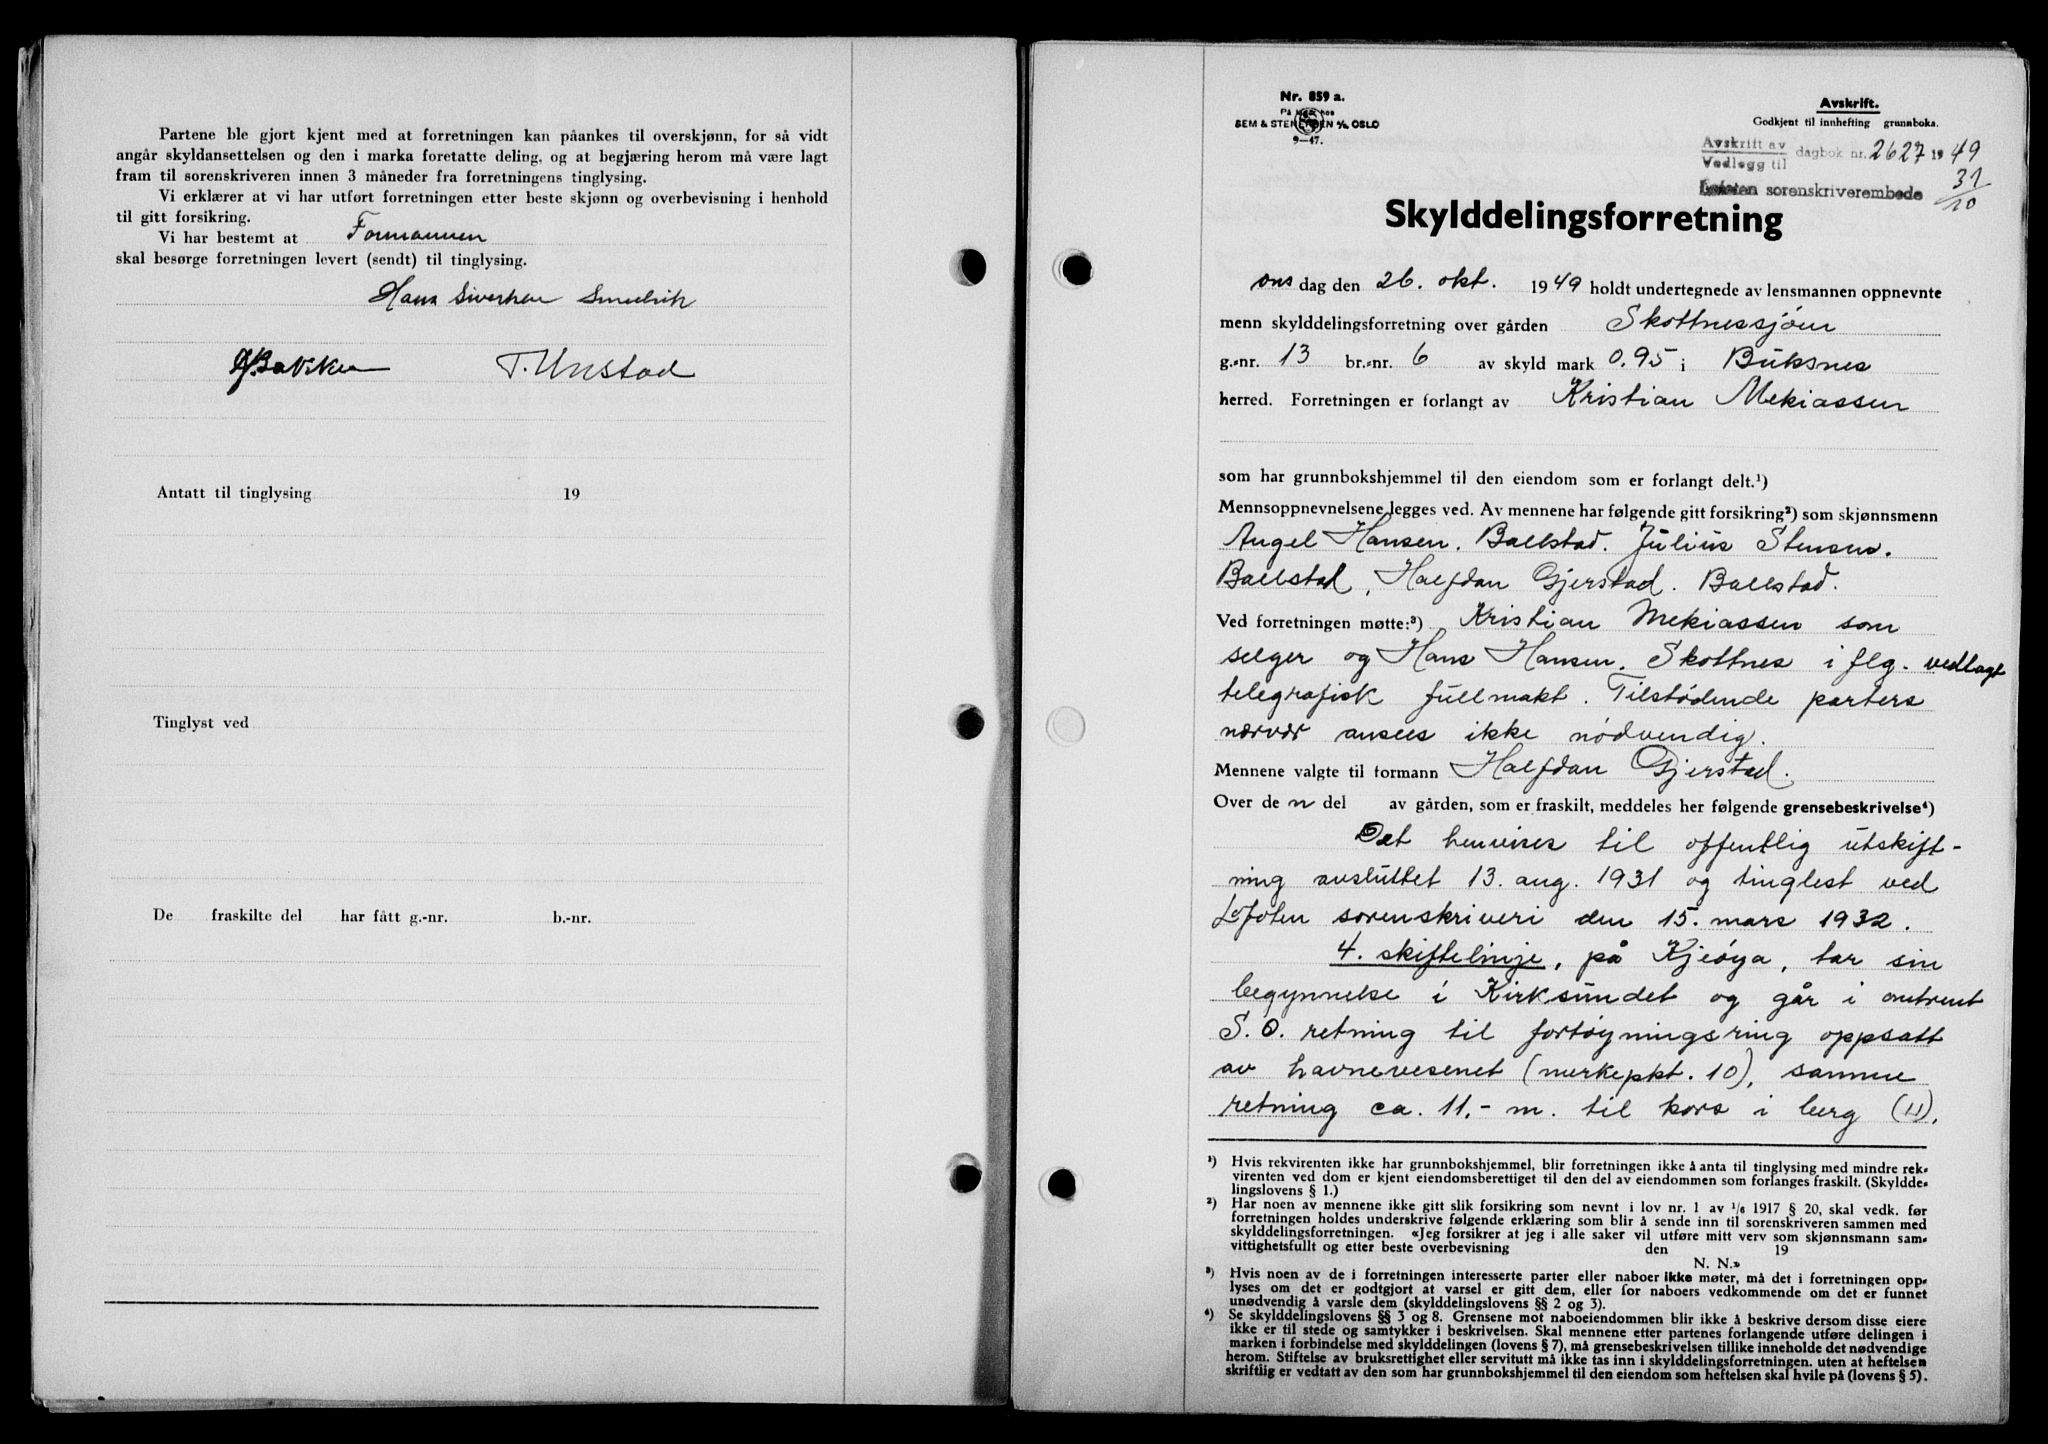 Partene ble gjort kjent med at forretningen kan påankes til overskjønn, for så vidt
angår skyldansettelsen og den i marka foretatte deling, og at begjæring herom må være lagt
fram til sorenskriveren innen 3 måneder fra forretningens tinglysing.
Vi erklærer at vi har utført forretningen etter beste skjønn og overbevisning i henhold
til gitt forsikring.
Vi har bestemt at Formannen
skal besørge forretningen levert (sendt) til tinglysing.
Hans Sivertsen Smedvik
T. Unstad
Antatt til tinglysing 19
Tinglyst ved
De fraskilte del har fått g.-nr. b.-nr.
Nr. 859 a.
På lager hos
SEM & STENERSEN A/S OSLO
9—47.
Avskrift.
Godkjent til innhefting grunnboka.
Avskrift av
Vedlegg til dagbok nr. 2627 1949
Lofoten sorenskriverembede 31/10
Skylddelingsforretning
ons dag den 26. okt. 1949 holdt undertegnede av lensmannen oppnevnte
menn skylddelingsforretning over gården Skottnessjøen
g.-nr. 13 br.-nr. 6 av skyld mark 0.95 i Buksnes
herred. Forretningen er forlangt av Kristian Mekiassen
som har grunnbokshjemmel til den eiendom som er forlangt delt.¹)
Mennsoppnevnelsene legges ved. Av mennene har følgende gitt forsikring²) som skjønnsmenn
Angel Hansen. Ballstad. Julius Stensen.
Ballstad, Halfdan Gjerstad. Ballstad.
Ved forretningen møtte:³) Kristian Mekiassen som
selger og Hans Hansen. Skottnes i flg. vedlagt
telegrafisk fullmakt. Tilstødende parters
nærvær ansees ikke nødvendig.
Mennene valgte til formann Halfdan Gjerstad.
Over de n del av gården, som er fraskilt, meddeles her følgende grensebeskrivelse⁴)
Det henvises til offentlig utskift-
ning avsluttet 13. aug. 1931 og tinglest ved
Lofoten sorenskriveri den 15. mars 1932.
4. skiftelinje, på Kjeøya, tar sin
begynnelse i Kirksundet og går i omtrent
S.O. retning til fortøyningsring oppsatt
av havnevesenet (merkepkt. 10), samme
retning ca. 11,- m. til kors i berg (11).
¹) Hvis rekvirenten ikke har grunnbokshjemmel, blir forretningen ikke å anta til tinglysing med mindre rek-
virenten ved dom er kjent eiendomsberettiget til den del av eiendommen som forlanges fraskilt. (Skyldde-
lingslovens § 1.)
²) Har noen av mennene ikke gitt slik forsikring som nevnt i lov nr. 1 av 1/6 1917 § 20, skal vedk. før
forretningen holdes underskrive følgende erklæring som blir å sende inn til sorenskriveren sammen med
skylddelingsforretningen. «Jeg forsikrer at jeg i alle saker vil utføre mitt verv som skjønnsmann sam-
vittighetsfullt og etter beste overbevisning den 19
N. N.»
³) Hvis noen av de i forretningen interesserte parter eller naboer ikke møter, må det i forretningen opp-
lyses om det er godtgjort at varsel er gitt dem, eller for naboers vedkommende om det er funnet
unødvendig å varsle dem (skylddelingslovens §§ 2 og 3).
⁴) Se skylddelingslovens §§ 3 og 8. Grensene mot naboeiendommen blir ikke å beskrive dersom disse eiere
ikke er til stede og samtykker i beskrivelsen. Skal mennene etter partenes forlangende utføre delingen i
marken i forbindelse med skylddelingen (lovens § 7), må grensebeskrivelsen tillike inneholde det nødvendige
herom. Stiftelse av bruksrettighet eller servitutt må ikke tas inn i skylddelingsforretningen. uten at heftelsen
skriftlig er vedtatt av den som har grunnbokshjemmel til den eiendom som heftelsen skal hvile på (lovens § 5).